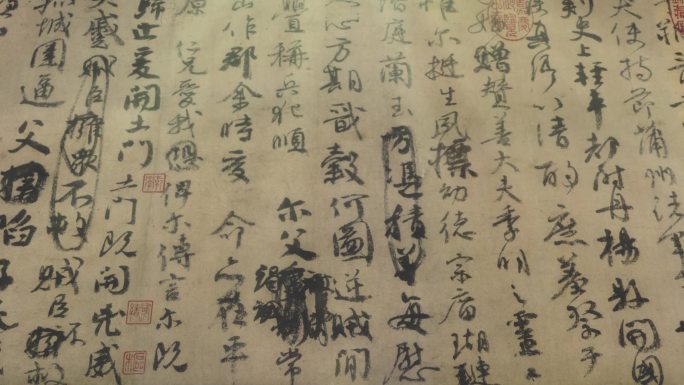 夫使持節蒲州諸
刺史上輕車都尉丹楊縣開國
侯真卿以清酌庶羞祭于
姪贈贊善大夫季明之靈
惟爾挺生夙標幼德宗廟瑚璉
階庭蘭玉方憑積善每慰
人心方期戩穀何圖逆賊間
釁稱兵犯順爾父竭誠常
山作郡余時受命亦在平
原仁兄愛我恐俾爾傳言爾既
歸止爰開土門土門既開兇威
大蹙賊臣擁衆不救賊臣不擁救
孤城圍逼父擒陷子